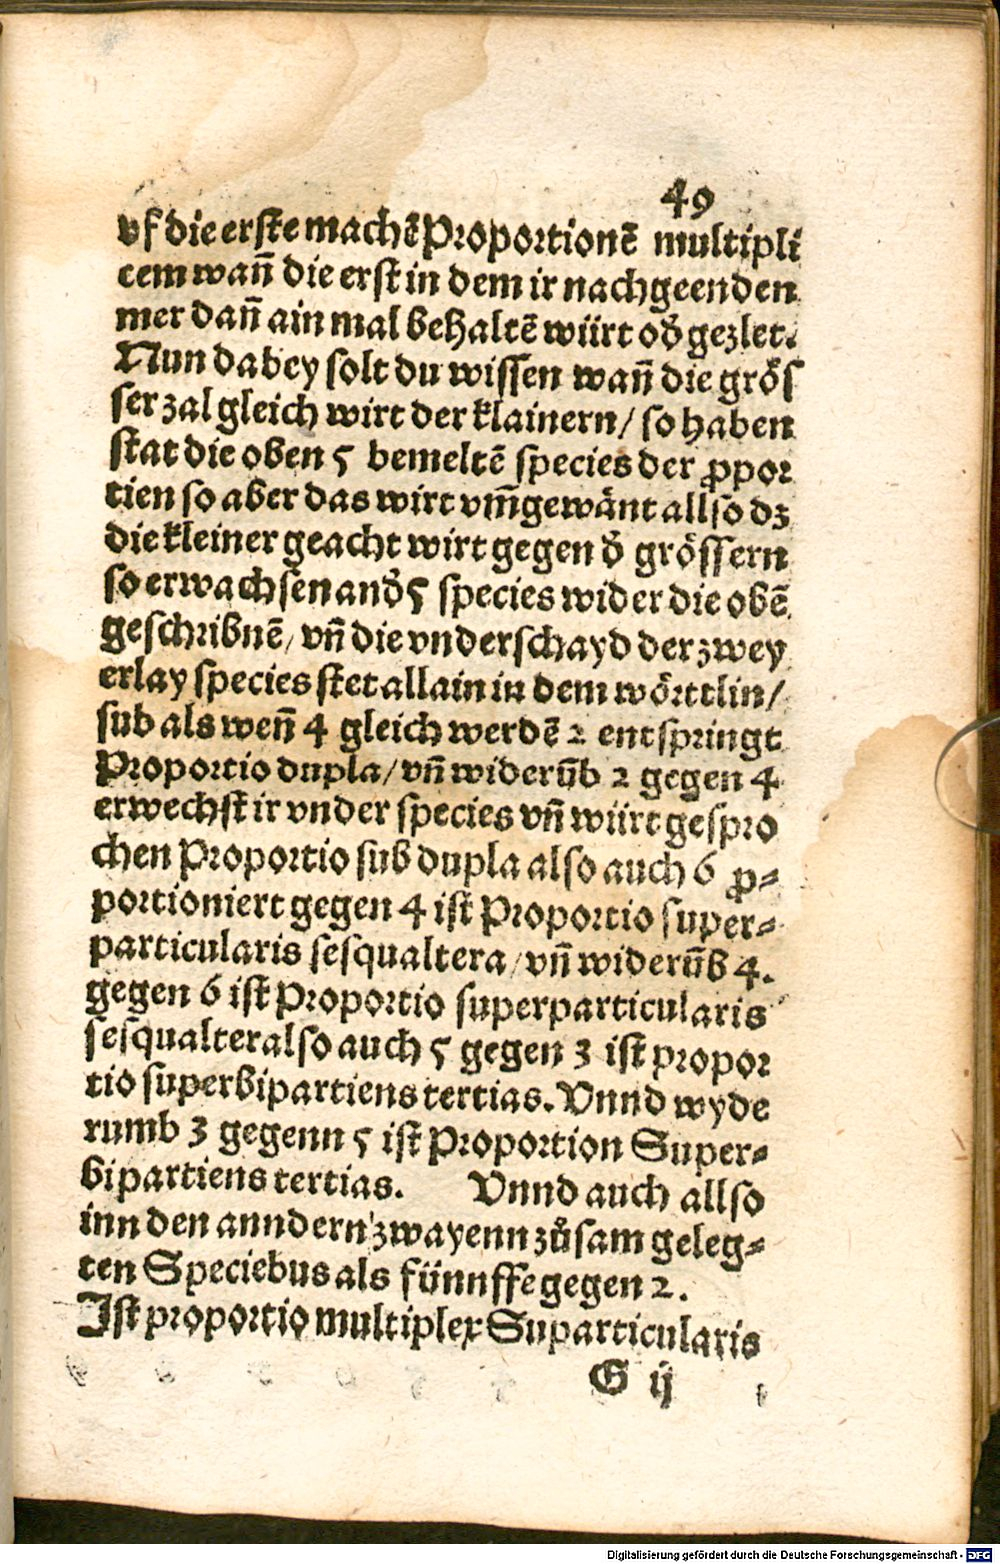 49
vf die erste machẽ Proportionẽ multipli
cem wañ die erst in dem ir nachgeenden
mer dañ ain mal behaltẽ würt od̕ gezlet.
Nun dabey solt du wissen wañ die grös
ser zal gleich wirt der klainern/ so haben
stat die oben 5 bemeltẽ species der ꝓpor
tien so aber das wirt vm̃gewänt allso dz
die kleiner geacht wirt gegen d̕ grössern
so erwachsen and̕ 5 species wider die obẽ
geschribnẽ/ vñ die vnderschayd der zwey
erlay species stet allain in dem wörttlin/
sub als weñ 4 gleich werdẽ 2 entspringt
Proportio dupla/ vñ widerũb 2 gegen 4
erwechst ir vnder species vñ würt gespro
chen Proportio sub dupla also auch 6 ꝓ⸗
portioniert gegen 4 ist Proportio super⸗
particularis sesqualtera/ vñ widerũb 4.
gegen 6 ist Proportio superparticularis
sesqualter also auch 5 gegen 3 ist propor
tio superbipartiens tertias. Vnnd wyde
rumb 3 gegenn 5 ist Proportion Super⸗
bipartiens tertias. Vnnd auch allso
inn den anndern zwayenn zůsam geleg⸗
ten Speciebus als fünnffe gegen 2.
Ist proportio multiplex Suparticularis
G ij
Digitalisierung gefördert durch die Deutsche Forschungsgemeinschaft - DFG